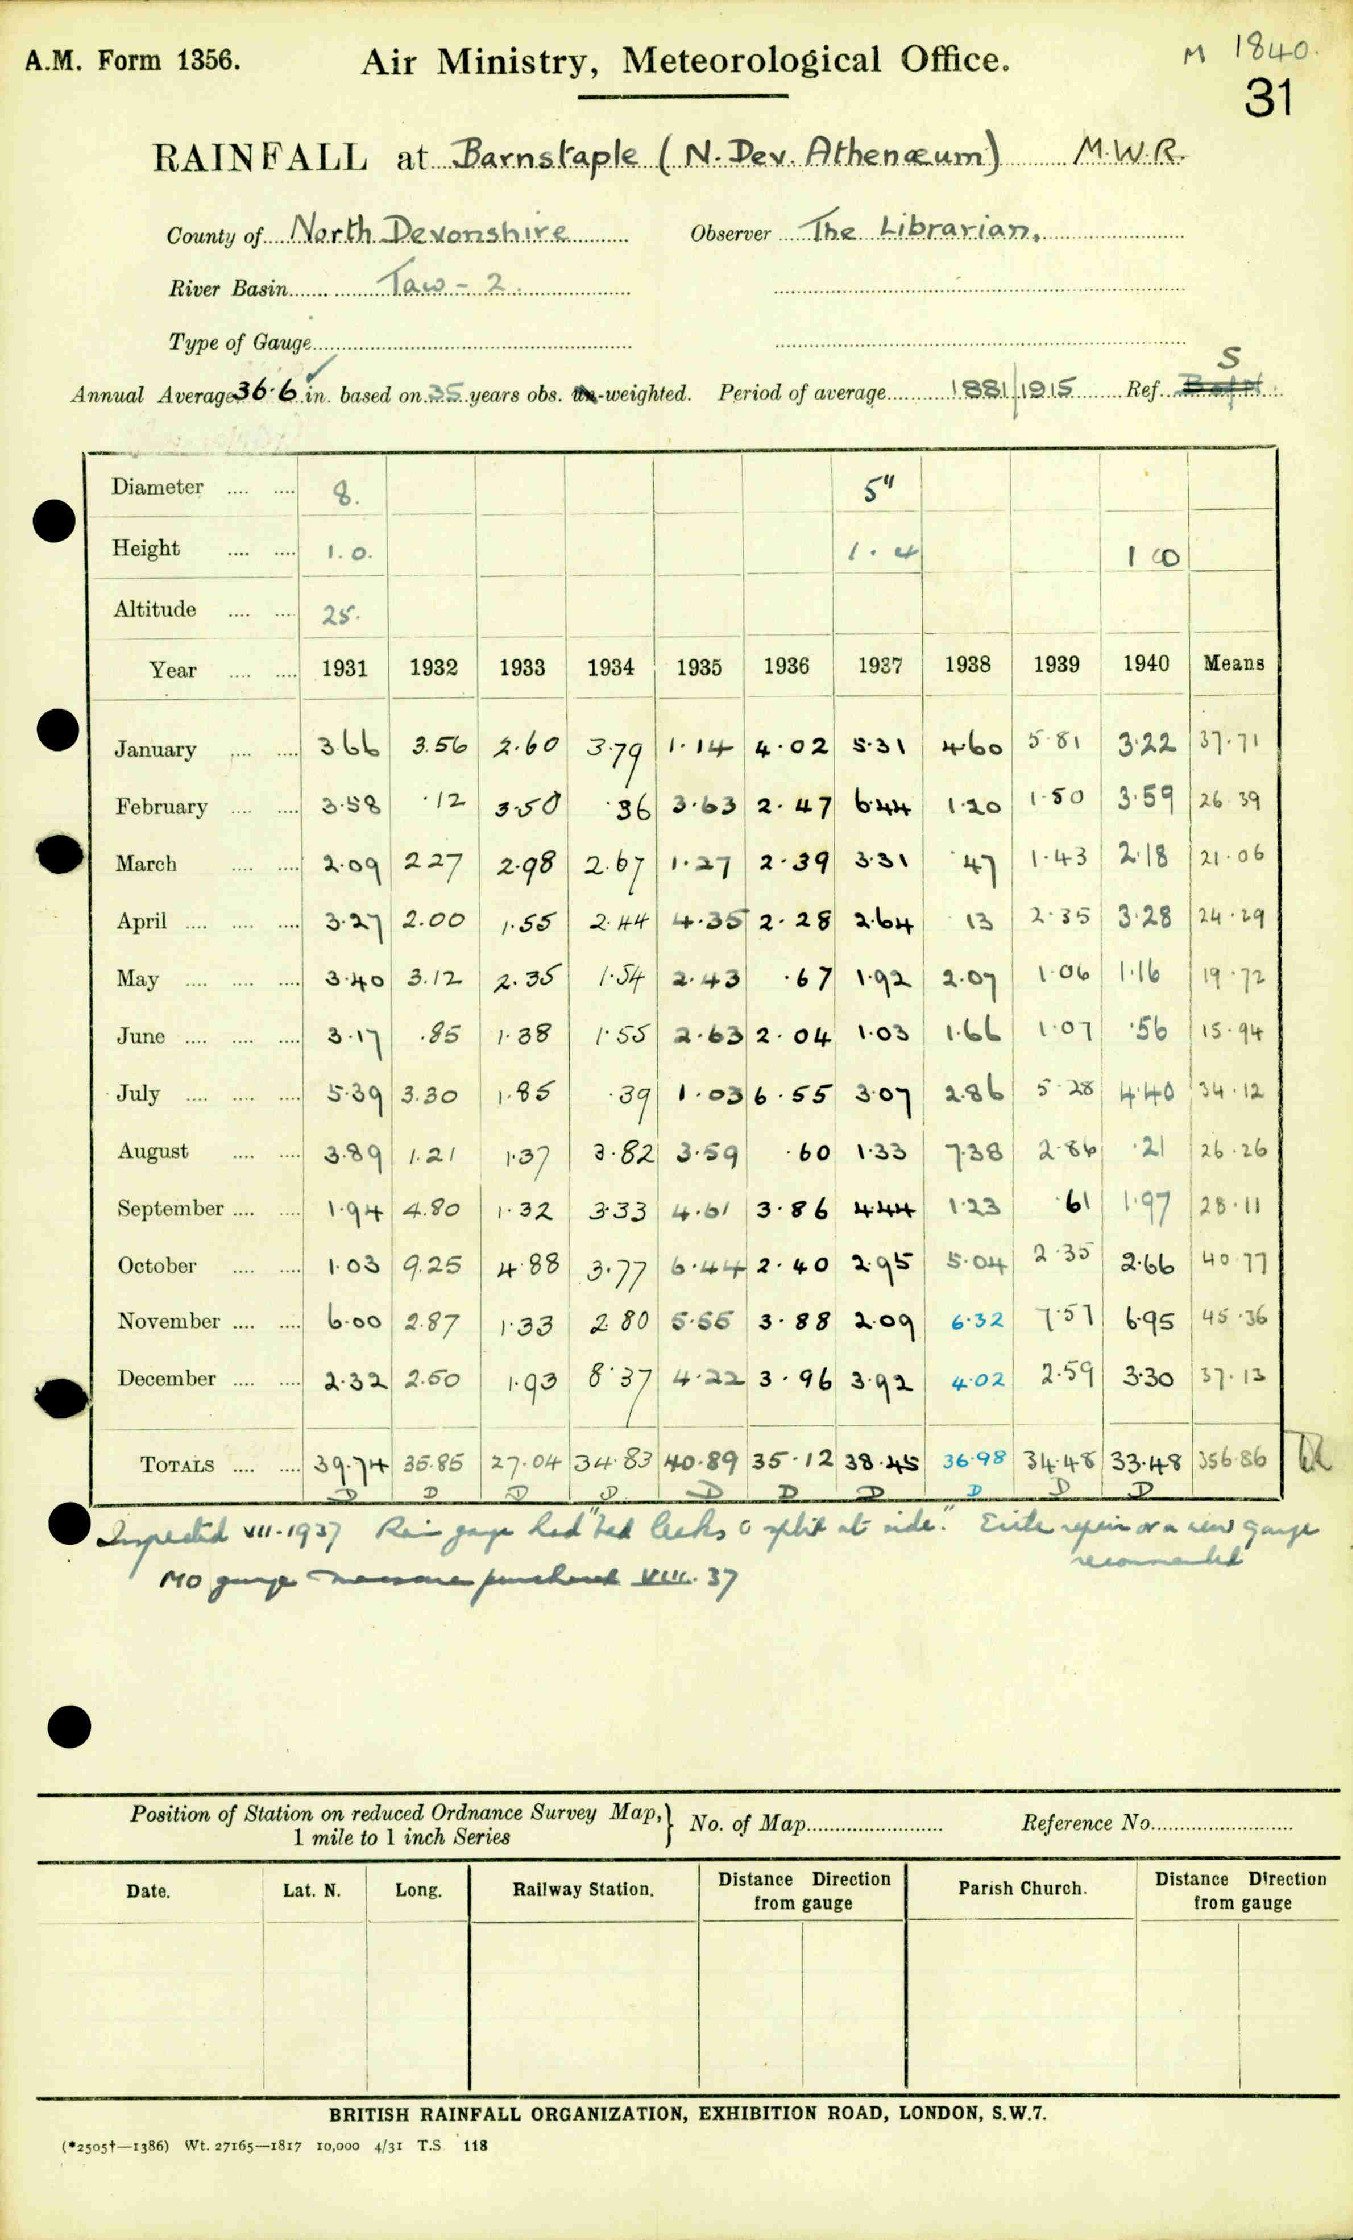 A.M. Form 1356.
Air Ministry, Meteorological Office.
M 1840.
31
RAINFALL at Barnstaple (N. Dev. Athenæum) M.W.R.
County of North Devonshire Observer The Librarian.
River Basin Taw - 2.
Type of Gauge
S
Annual Average 36.6 in. based on 35 years obs. -weighted. Period of average 1881/1915 Ref.
Diameter 8. 5"
Height 1.0. 1.4 1 0
Altitude 25.
Year 1931 1932 1933 1934 1935 1936 1937 1938 1939 1940 Means
January 3.66 3.56 2.60 3.79 1.14 4.02 5.31 4.60 5.81 3.22 37.71
February 3.58 .12 3.50 .36 3.63 2.47 6.44 1.20 1.50 3.59 26.39
March 2.09 2.27 2.98 2.67 1.27 2.39 3.31 .47 1.43 2.18 21.06
April 3.27 2.00 1.55 2.44 4.35 2.28 2.64 .13 2.35 3.28 24.29
May 3.40 3.12 2.35 1.54 2.43 .67 1.92 2.07 1.06 1.16 19.72
June 3.17 .85 1.38 1.55 2.63 2.04 1.03 1.66 1.07 .56 15.94
July 5.39 3.30 1.85 .39 1.03 6.55 3.07 2.86 5.28 4.40 34.12
August 3.89 1.21 1.37 3.82 3.59 .60 1.33 7.38 2.86 .21 26.26
September 1.94 4.80 1.32 3.33 4.61 3.86 4.44 1.23 .61 1.97 28.11
October 1.03 9.25 4.88 3.77 6.44 2.40 2.95 5.04 2.35 2.66 40.77
November 6.00 2.87 1.33 2.80 5.55 3.88 2.09 6.32 7.57 6.95 45.36
December 2.32 2.50 1.93 8.37 4.22 3.96 3.92 4.02 2.59 3.30 37.13
TOTALS 39.74 35.85 27.04 34.83 40.89 35.12 38.45 36.98 34.48 33.48 356.86
D D D D D D D D D D
Inspected VII-1937 Rain gauge had "bad leaks & split at side." Either repair or a new gauge
recommended
MO gauge measure purchased VIII. 37
Position of Station on reduced Ordnance Survey Map, 1 mile to 1 inch Series No. of Map Reference No.
Date. Lat. N. Long. Railway Station. Distance Direction from gauge Parish Church. Distance Direction from gauge
BRITISH RAINFALL ORGANIZATION, EXHIBITION ROAD, LONDON, S.W.7.
(*2505†—1386) Wt. 27165—1817 10,000 4/31 T.S. 118